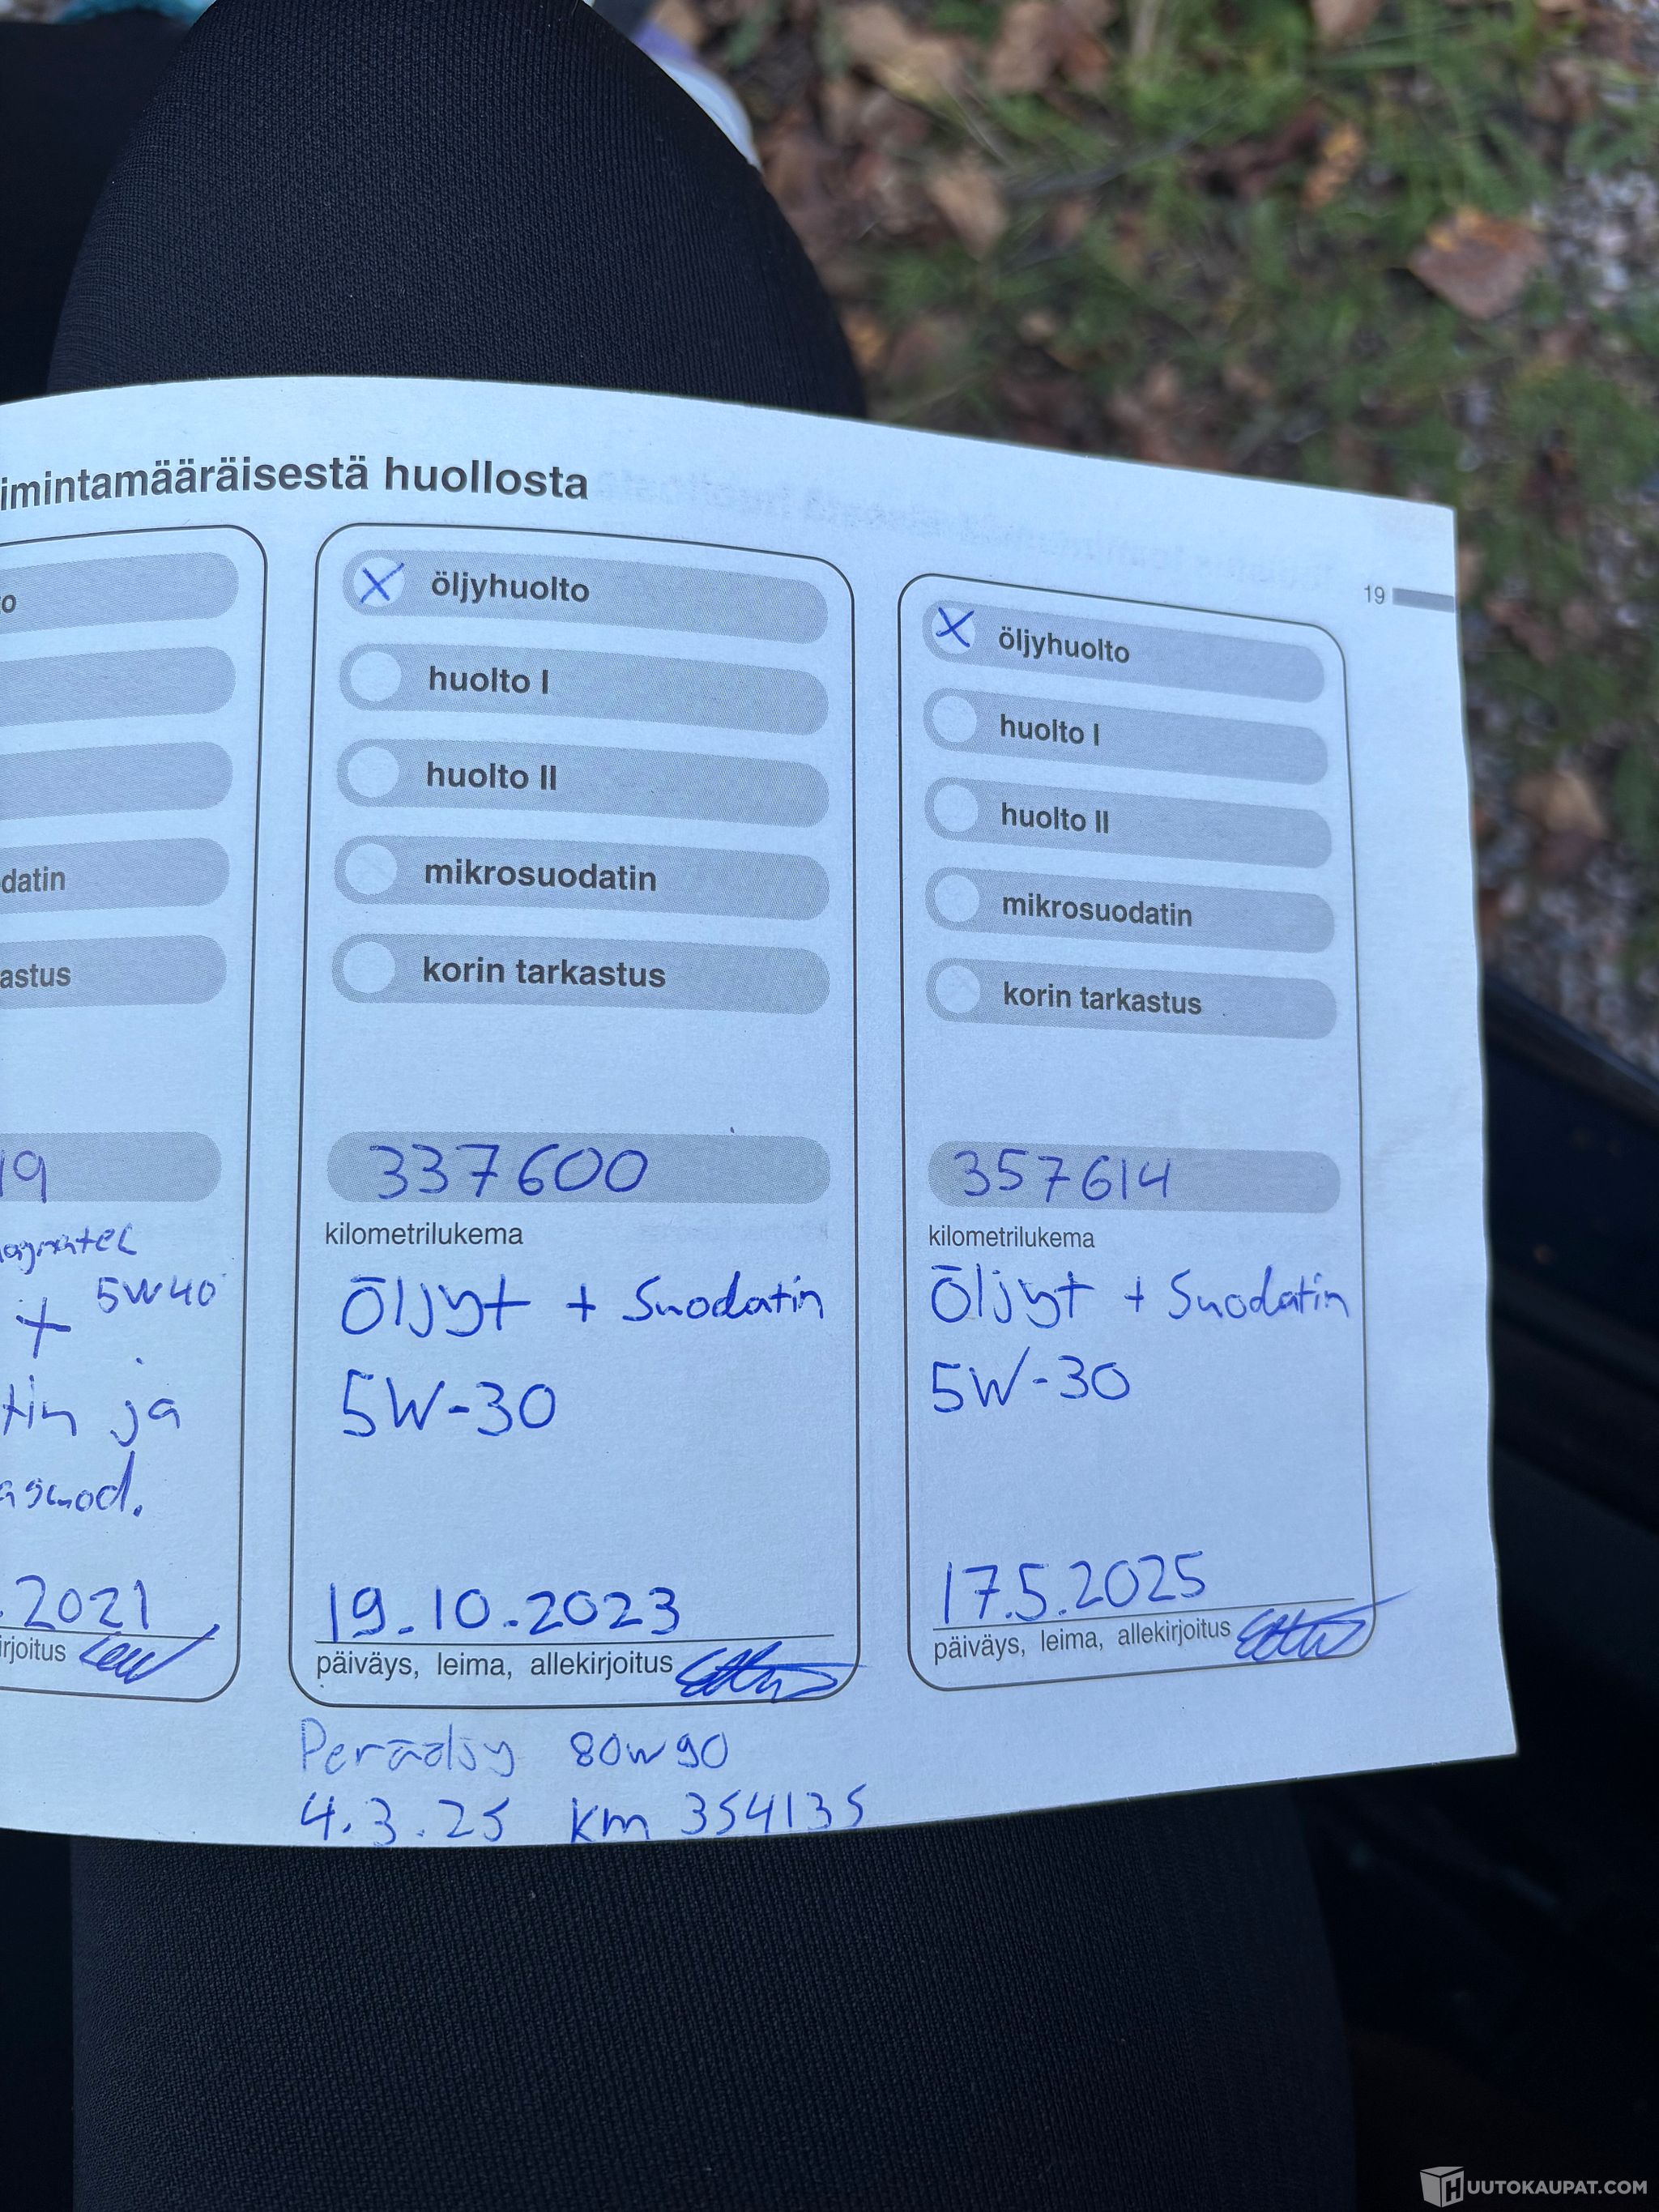 imintamääräisestä huollosta
19
o
datin
astus
19
5W40
+
tin ja
asuod.
.2021
irjoitus
öljyhuolto
huolto I
huolto II
mikrosuodatin
korin tarkastus
337600
kilometrilukema
Öljyt + Suodatin
5W-30
19.10.2023
päiväys, leima, allekirjoitus
Peräöljy 80w90
4.3.25 km 354135
öljyhuolto
huolto I
huolto II
mikrosuodatin
korin tarkastus
357614
kilometrilukema
Öljyt + Suodatin
5W-30
17.5.2025
päiväys, leima, allekirjoitus
HUUTOKAUPAT.COM